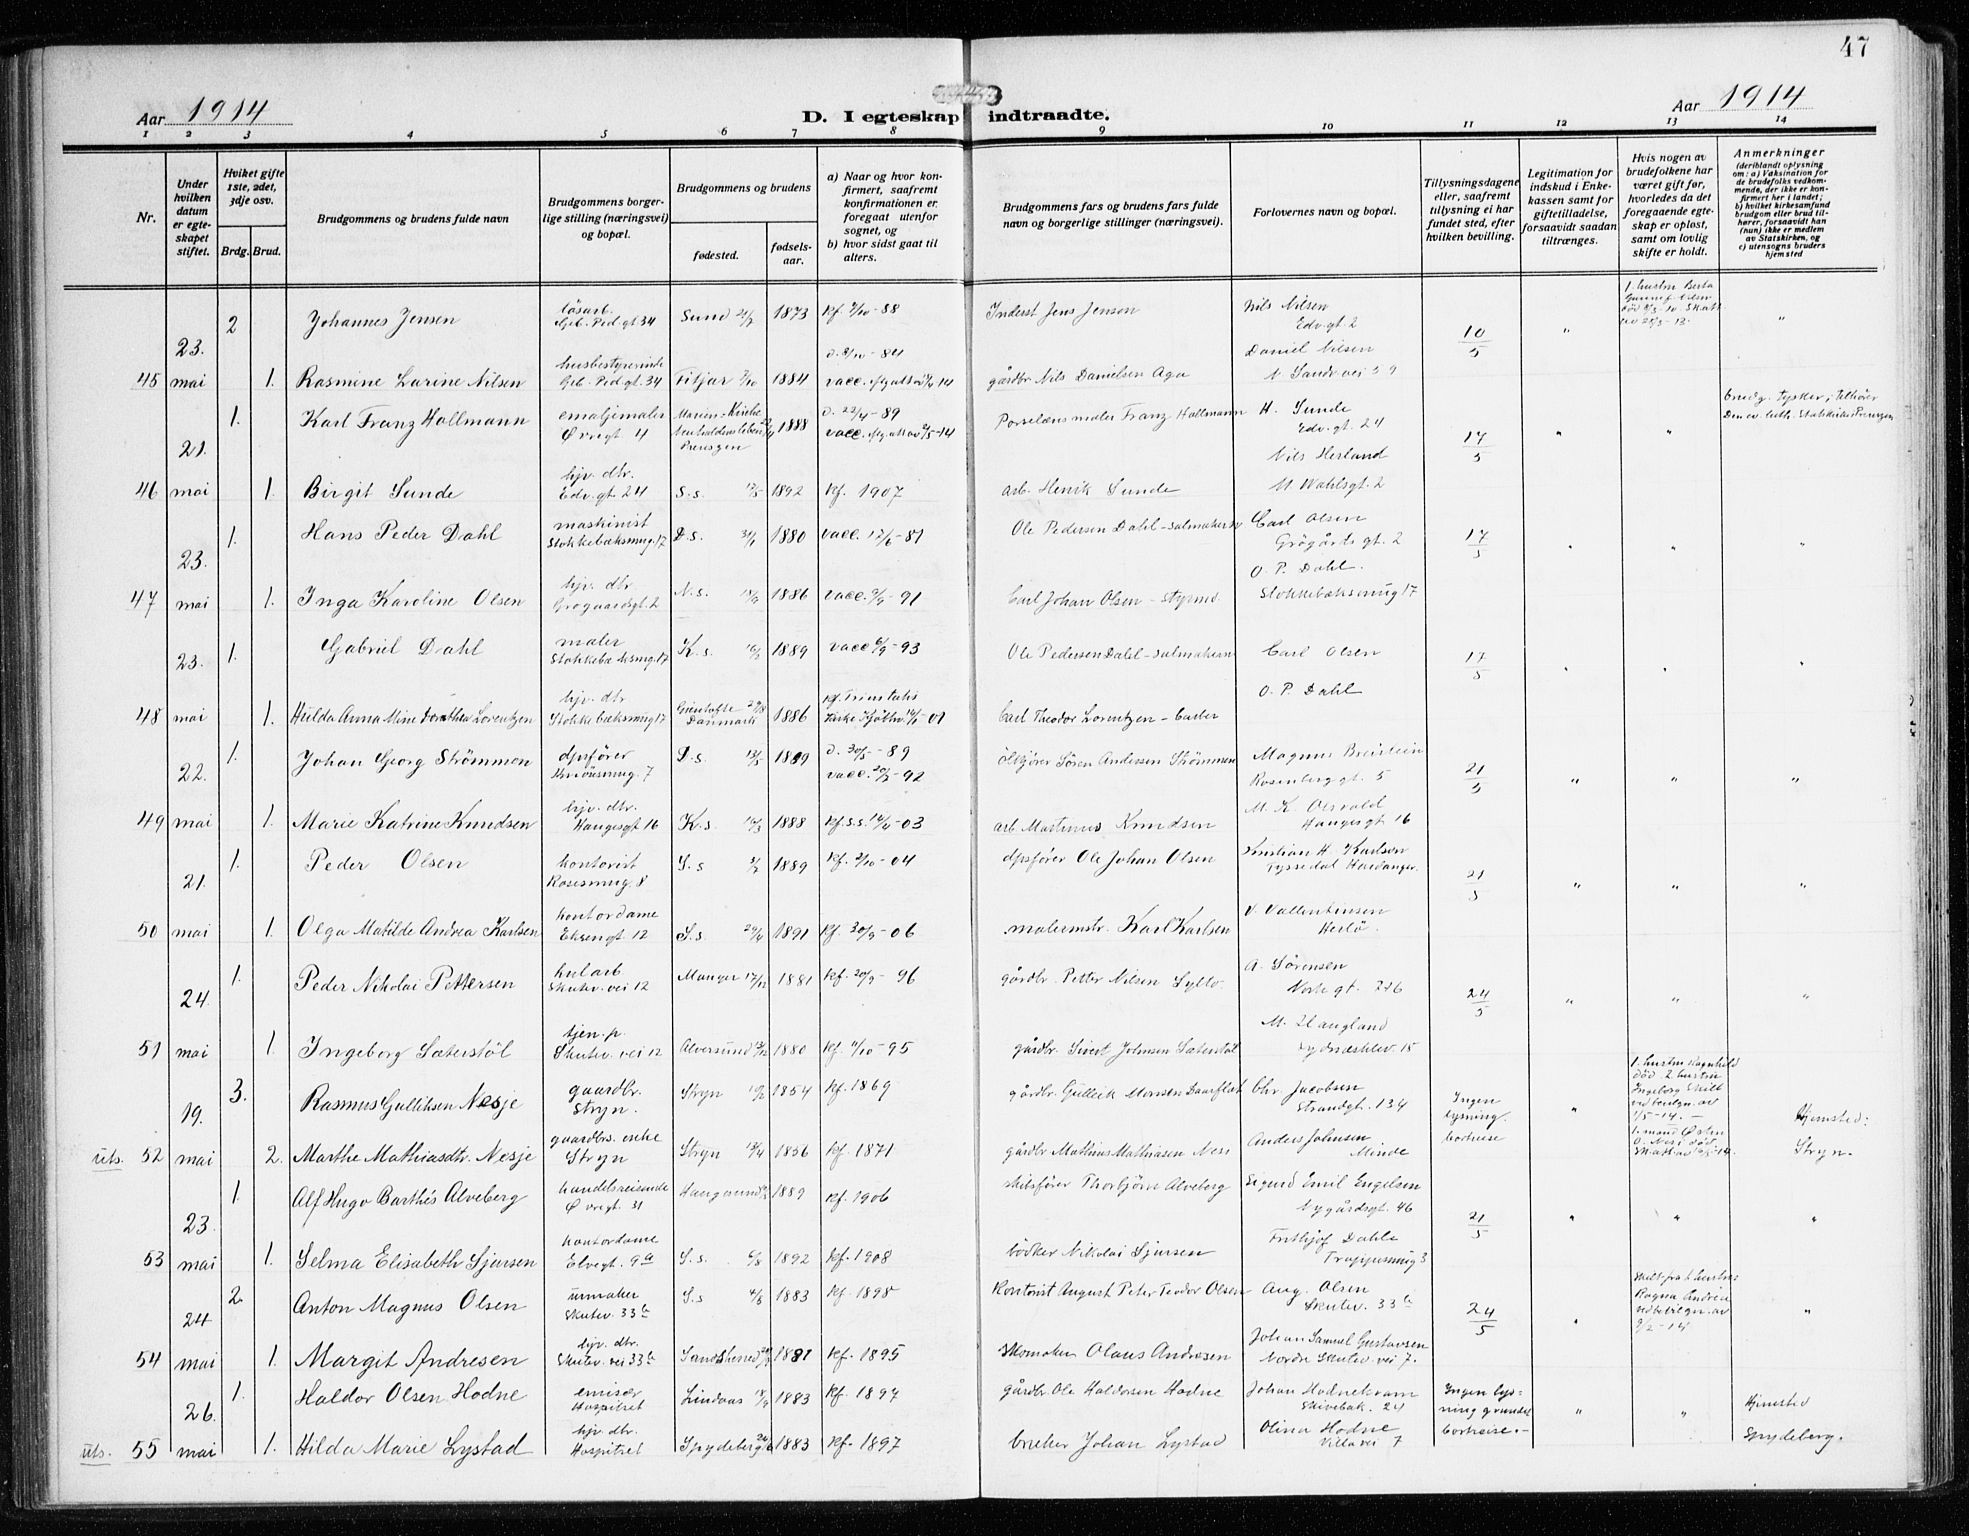 47
Aar 1914
D. I egteskap indtraadte.
Aar 1914
1 2 3 4 5 6 7 8 9 10 11 12 13 14
Nr.
Under hvilken datum er egteskapet stiftet.
Hviket gifte 1ste, 2det, 3dje osv.
Brdg. Brud.
Brudgommens og brudens fulde navn
Brudgommens borgerlige stilling (næringsvei) og bopæl.
Brudgommens og brudens
fødested.
fødselsaar.
a) Naar og hvor konfirmert, saafremt konfirmationen er foregaat utenfor sognet, og
b) hvor sidst gaat til alters.
Brudgommens fars og brudens fars fulde navn og borgerlige stillinger (næringsvei).
Forlovernes navn og bopæl.
Tillysningsdagene eller, saafremt tillysning ei har fundet sted, efter hvilken bevilling.
Legitimation for indskud i Enkekassen samt for giftetilladelse, forsaavidt saadan tiltrænges.
Hvis nogen av brudefolkene har været gift før, hvorledes da det foregaaende egteskap er opløst, samt om lovlig skifte er holdt.
Anmerkninger (deriblandt oplysning om: a) Vaksination for de brudefolks vedkommende, der ikke er konfirmert her i landet; b) hvilket kirkesamfund brudgom eller brud tilhører, forsaavidt han (hun) ikke er medlem av Statskirken, og c) utensogns bruders hjemsted
23. 2 Johannes Jensen løsarb. Geb. Ped. gt. 34 Sund 1873 Kf. 2/10-88 Inderst Jens Jenson Nils Nilsen Edv. gt. 2 10/5 " 1. hustru Berta "
45 mai 1. Rasmine Larine Nilsen husbestyrerinde Geb. Ped. gt. 34 Fitjar 1884 gårdbr. Nils Danielsen Aga Daniel Nilsen
21. 1. Karl Franz Hollmann emaljemaler Øvregt 4 Marien-Kirche Neuhaldensleben Preusgen 1888 d. 22/4-89 Porselænsmaler Franz Hollmann H. Sunde Edv. gt. 24 17/5 " " brudg. tysker; tilhører
46 mai 1. Birgit Sunde hjv. dtr. Edv. gt. 24 S.s. 1892 kf. 1907 arb. Henrik Sunde Nils Herland M. Wahlsgt. 2
23. 1. Hans Peder Dahl maskinist Stokkebæksmug. 17 D.s. 1880 vacc. 12/6-81 Ole Pedersen Dahl - salmakerm Carl Olsen Grøgårds gt. 2 17/5 " " "
47 mai 1. Inga Karoline Olsen hjv. dtr Grogaardsgt. 2 N.s. 1886 vacc. 9/9-91 Carl Johan Olsen - styrmd. O. P. Dahl. Stokkebæksmug 17
23. 1. Gabriel Dahl maler Stokkebæksmug. 17 K.s. 1889 vacc 6/9-93 Ole Pedersen Dahl - salmakerm Carl Olsen 17/5 " " "
48 mai 1. Hulda Anna Mine Dorothea Lorentzen hjv. dtr Stokkebæksmug 17 Danmark 1886 Carl Theodor Lorentzen - barber O. P. Dahl
22. 1. Johan Georg Strømmen dpsfører Knøsesmug. 7 D.s 1889 d. 30/5-89 vacc. 20/5-92 Søren Andersen Strømmen Magnus Breistein Rosenberg gt. 5 21/5 " " "
49 mai 1. Marie Katrine Knudsen hjv. dtr. Haugesgt 16 K.s. 1888 kf. S.s. 14/4-03 arb. Martinus Knudsen M. K. Olsvold Haugesgt 16
21. 1. Peder Olsen kontorist Rosesmug. 8 S.s 1889 Kf. 2/10-04 dpsfører Ole Johan Olsen Kristian H. Karlsen Tyssedal Hardanger. 21/5 " " "
50 mai 1. Olga Matilde Andrea Karlsen kontordame Eksengt. 12 S.s. 29/4 1891 kf. 30/9-06 malermstr. Karl Karlsen V. Vallentinsen Herlø.
24. 1. Peder Nikolai Pettersen kularb Skutev. vei 12 Manger 17/12 1881 kf. 20/9-96 gårdbr. Petter Nilsen Sylta. A. Sørensen 24/5 " " "
51 mai 1. Ingeborg Sæterstøl tjen. p. Skutev. vei 12 Alversund 1880 kf. 1/10-95 gårdbr. Sivert Johnsen Sæterstøl M. Haugland Sydnæsklev. 15
19. 3. Rasmus Gulliksen Nesje gaardbr. Stryn. Stryn 1854 kf. 1869 gårdbr. Gullik Monsen Chr. Jacobsen Strandgt. 134 Ingen lysning. bortreise " 1. hustru Ragnhild død. 2. hustru Ingeborg skilt ved bevilgn. av 1/5-14. — Hjemsted: Stryn.
uts. 52 mai 2. Marthe Mathiasdtr. Nesje gaardbrs. enke Stryn Stryn 13/4 1856 kf. 1871 gårdbr Mathias Mathiasen Nesi Anders Johnsen Minde 1. mand Østen O. Nesi død.
23. 1. Alf Hugo Barthés Alveberg handelsreisende Øvregt. 31 Haugesund 1889 kf. 1906 skibsfører Thorbjørn Alveberg Sigurd Emil Engelsen Nygårdsgt. 46 21/5 " " "
53 mai 1. Selma Elisabeth Sjursen kontordame Elvegt. 9a S.s. 6/8 1892 kf. 1908 bødker Nikolai Sjursen Frithjof Dahle Trappesmug 3
24 2. Anton Magnus Olsen urmaker Skutev. 33b S.s 4/8 1883 kf. 1898 Kontorist August Peter Teodor Olsen Aug. Olsen Skutev. 33b 24/5 " skilt fra 1. hustru Ragna Andrea ved bevilgn. av 9/2-14 "
54 mai 1. Margit Andresen hjv. dtr. Skutev. vei 33b Sandsherred 1881 kf. 1895 skomaker Olaus Andresen Johan Samuel Gustavsen Nordre Skutev. vei 7.
26. 1. Haldor Olsen Hodne emisær Hospitset Lindaas 1883 kf. 1897 gårdbr. Ole Haldorsen Hodne Johan Hodnekvam Skivebak. 24 Ingen lysning grundet bortreise. — " " Hjemsted Spydeberg.
uts. 55 mai 1. Hilda Marie Lystad hjv. dtr Hospitset Spydeberg 1883 kf. 1897 bruker Johan Lystad Olina Hodne Villavei 7